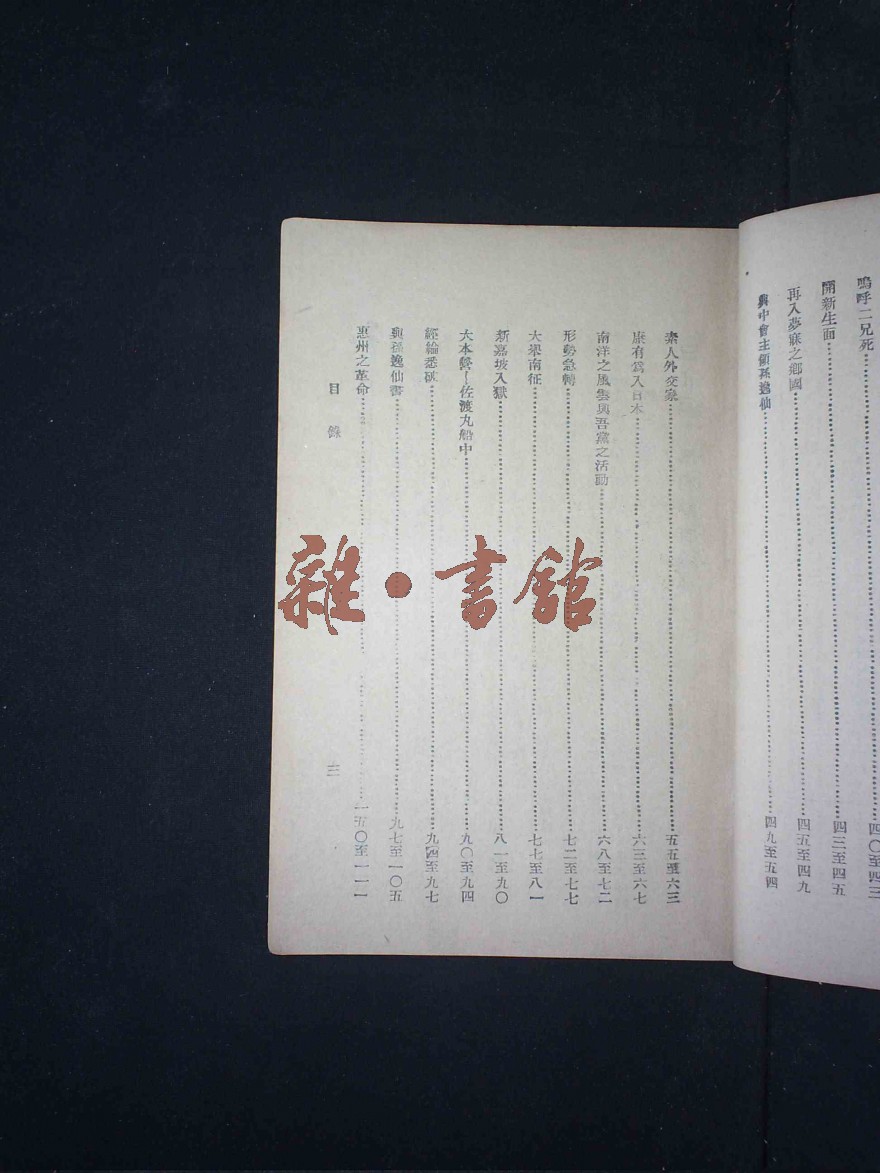 嗚呼二兄死……四〇至四三
開新生面……四三至四五
再入夢寐之鄉國……四五至四九
興中會主領孫逸仙……四九至五四
素人外交家……五五至六三
康有爲入日本……六三至六七
南洋之風雲與吾黨之活動……六八至七二
形勢急轉……七二至七七
大舉南征……七七至八一
新嘉坡入獄……八一至九〇
大本營—佐渡丸船中……九〇至九四
經綸悉破……九四至九七
與孫逸仙書……九七至一〇五
惠州之革命……一五〇至一一一
目錄
三
雜・書館